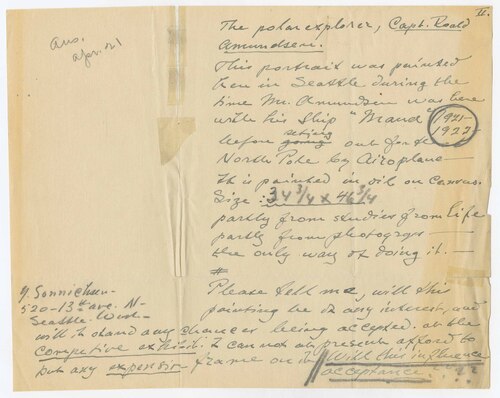 II.
Ans.
Apr. 21
The polar explorer, Capt. Roald
Amundsen.
This portrait was painted
here in Seattle during the
time Mr. Amundsen was here
with his Ship "Maud" 1921-
1922-
before going seting out for the
North Pole by Airoplane—
It is painted in oil on Canvas
Size: 34 3/4 x 46 3/4
partly from studies from life
partly from photogros—
the only way of doing it.—
#
Please tell me, will this
painting be of any interest, and
Y. Sonnichsen-
520-13th ave. N-
Seattle. Wash-
will it stand any chances being accepted. at the
competive exhibit. I can not at present afford to
put any expensive frame on it
With this influence
acceptance . ? ?